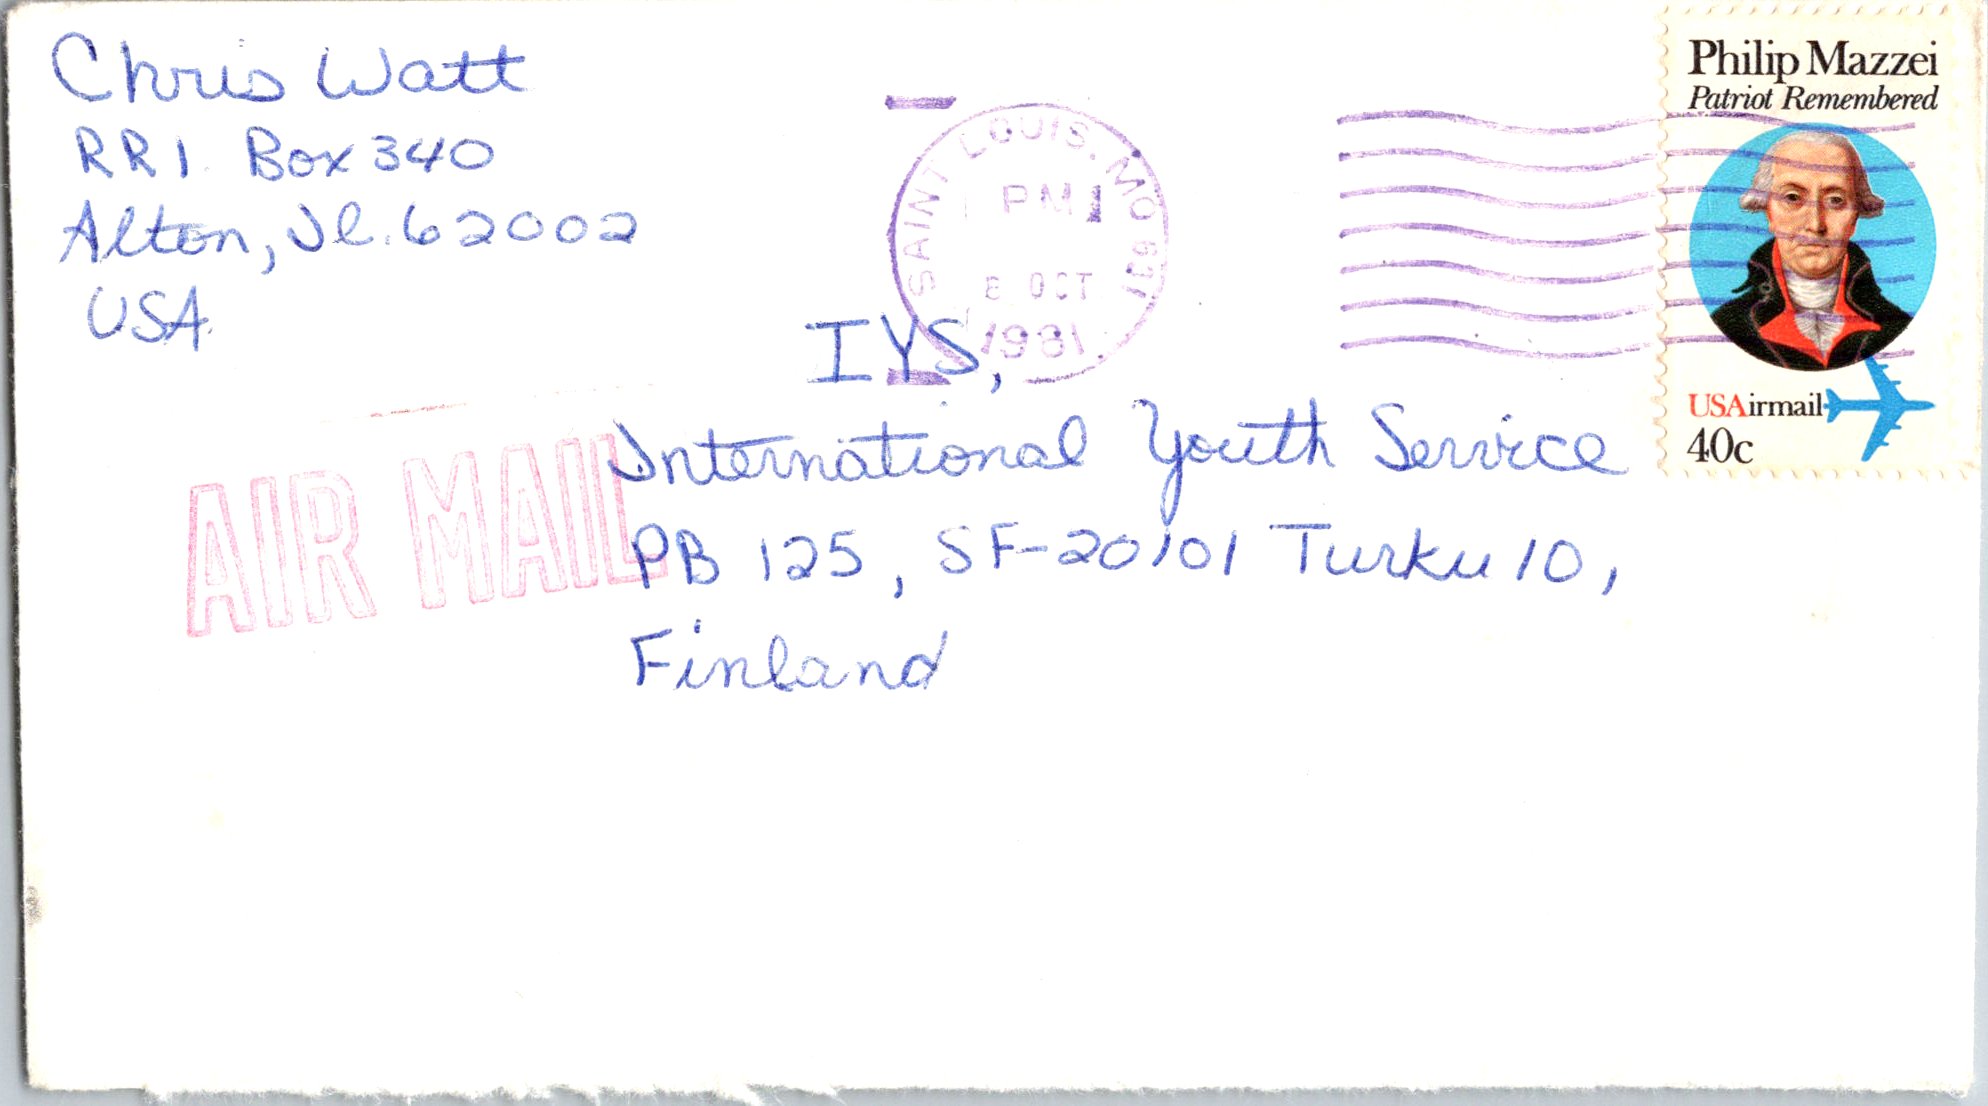 Chris Watt
RR 1 Box 340
Alton, Il. 62002
USA.
SAINT LOUIS, MO 631
PM
OCT
1981
Philip Mazzei
Patriot Remembered
USAirmail
40c
AIR MAIL
IYS,
International Youth Service
PB 125, SF-20101 Turku 10,
Finland